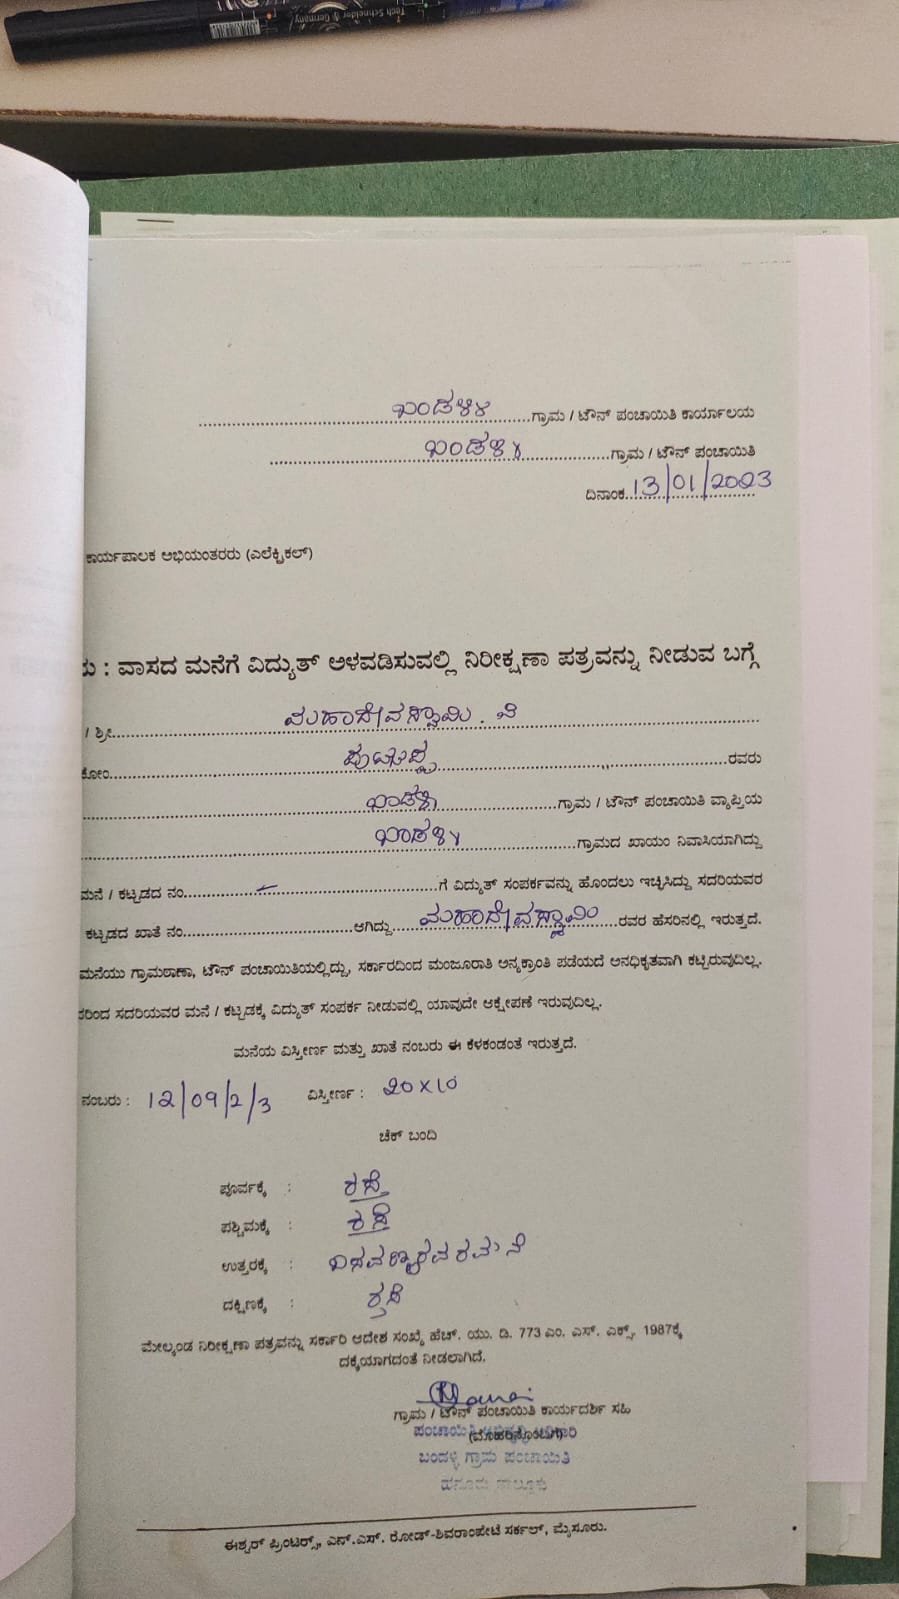 Tech Schneider & Germany
ಬಂಡಳ್ಳಿ ಗ್ರಾಮ / ಟೌನ್ ಪಂಚಾಯಿತಿ ಕಾರ್ಯಾಲಯ
ಬಂಡಳ್ಳಿ ಗ್ರಾಮ / ಟೌನ್ ಪಂಚಾಯಿತಿ
ದಿನಾಂಕ 13/01/2023
ಕಾರ್ಯಪಾಲಕ ಅಭಿಯಂತರರು (ಎಲೆಕ್ಟ್ರಿಕಲ್)
: ವಾಸದ ಮನೆಗೆ ವಿದ್ಯುತ್ ಅಳವಡಿಸುವಲ್ಲಿ ನಿರೀಕ್ಷಣಾ ಪತ್ರವನ್ನು ನೀಡುವ ಬಗ್ಗೆ
/ ಶ್ರೀ ಮಹಾದೇವಸ್ವಾಮಿ . ಪಿ
ಕೋಂ ಪುಟ್ಟಪ್ಪ ರವರು
ಬಂಡಳ್ಳಿ ಗ್ರಾಮ / ಟೌನ್ ಪಂಚಾಯಿತಿ ವ್ಯಾಪ್ತಿಯ
ಬಂಡಳ್ಳಿ ಗ್ರಾಮದ ಖಾಯಂ ನಿವಾಸಿಯಾಗಿದ್ದು
ಮನೆ / ಕಟ್ಟಡದ ನಂ. – ಗೆ ವಿದ್ಯುತ್ ಸಂಪರ್ಕವನ್ನು ಹೊಂದಲು ಇಚ್ಛಿಸಿದ್ದು ಸದರಿಯವರ
ಕಟ್ಟಡದ ಖಾತೆ ನಂ. ಆಗಿದ್ದು ಮಹಾದೇವಸ್ವಾಮಿ ರವರ ಹೆಸರಿನಲ್ಲಿ ಇರುತ್ತದೆ.
ಮನೆಯು ಗ್ರಾಮಠಾಣಾ, ಟೌನ್ ಪಂಚಾಯಿತಿಯಲ್ಲಿದ್ದು, ಸರ್ಕಾರದಿಂದ ಮಂಜೂರಾತಿ ಅನ್ಯಕ್ರಾಂತಿ ಪಡೆಯದೆ ಅನಧಿಕೃತವಾಗಿ ಕಟ್ಟಿರುವುದಿಲ್ಲ.
ಸದರಿಯವರ ಮನೆ / ಕಟ್ಟಡಕ್ಕೆ ವಿದ್ಯುತ್ ಸಂಪರ್ಕ ನೀಡುವಲ್ಲಿ ಯಾವುದೇ ಆಕ್ಷೇಪಣೆ ಇರುವುದಿಲ್ಲ.
ಮನೆಯ ವಿಸ್ತೀರ್ಣ ಮತ್ತು ಖಾತೆ ನಂಬರು ಈ ಕೆಳಕಂಡಂತೆ ಇರುತ್ತದೆ.
ನಂಬರು : 12/09/2/3 ವಿಸ್ತೀರ್ಣ : 20x10
ಚೆಕ್ ಬಂದಿ
ಪೂರ್ವಕ್ಕೆ : ರಸ್ತೆ
ಪಶ್ಚಿಮಕ್ಕೆ : ರಸ್ತೆ
ಉತ್ತರಕ್ಕೆ : ಬಸವಣ್ಣರವರ ಮನೆ
ದಕ್ಷಿಣಕ್ಕೆ : ರಸ್ತೆ
ಮೇಲ್ಕಂಡ ನಿರೀಕ್ಷಣಾ ಪತ್ರವನ್ನು ಸರ್ಕಾರಿ ಆದೇಶ ಸಂಖ್ಯೆ ಹೆಚ್. ಯು. ಡಿ. 773 ಎಂ. ಎಸ್. ಎಕ್ಸ್. 1987ಕ್ಕೆ
ದಕ್ಕೆಯಾಗದಂತೆ ನೀಡಲಾಗಿದೆ.
ಗ್ರಾಮ / ಟೌನ್ ಪಂಚಾಯಿತಿ ಕಾರ್ಯದರ್ಶಿ ಸಹಿ
(ಮೊಹರಿನೊಂದಿಗೆ)
ಪಂಚಾಯಿತಿ ಅಭಿವೃದ್ಧಿ ಅಧಿಕಾರಿ
ಬಂಡಳ್ಳಿ ಗ್ರಾಮ ಪಂಚಾಯಿತಿ
ಹನೂರು ತಾಲ್ಲೂಕು
ಈಶ್ವರ್ ಪ್ರಿಂಟರ್ಸ್, ಎನ್.ಎಸ್. ರೋಡ್-ಶಿವರಾಂಪೇಟೆ ಸರ್ಕಲ್, ಮೈಸೂರು.